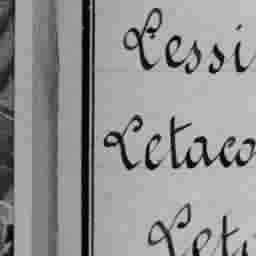 Lessi
Letaco
Leto